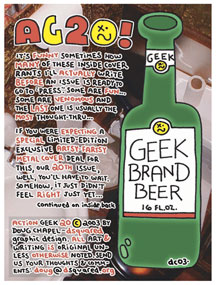 AG20!
IT'S FUNNY SOMETIMES HOW
MANY OF THESE INSIDE COVER
RANTS I'LL ACTUALLY WRITE
BEFORE AN ISSUE IS READY TO
GO TO "PRESS". SOME ARE FUN...
SOME ARE VENOMOUS AND
THE LAST ONE IS USUALLY THE
MOST THOUGHT-THRU...
IF YOU WERE EXPECTING A
SPECIAL LIMITED-EDITION
EXCLUSIVE ARTSY FARTSY
METAL COVER DEAL FOR
THIS, OUR 20TH ISSUE,
WELL, YOU'LL HAVE TO WAIT.
SOMEHOW, IT JUST DIDN'T
FEEL RIGHT JUST YET.
continued on inside back
ACTION GEEK 20 © 2003 BY
DOUG CHAPEL - dsquared
graphic design. ALL ART &
WRITING IS ORIGINAL UN-
LESS OTHERWISE NOTED. SEND
US YOUR THOUGHTS & COMM-
ENTS! doug@dsquared.org
GEEK
GEEK
BRAND
BEER
16 FL.OZ.
dc03.